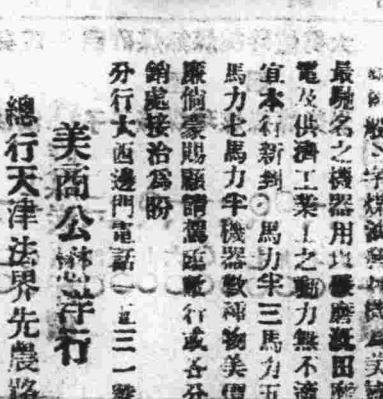 字煤油
最馳名之機器用以磨溉田
電及供濟工業上之動力無不適
宜本行新到 馬力半三馬力五
馬力七馬力半機器數種物美價
廉倘蒙賜顧請駕臨敝行或各分
銷處接洽為盼
分行大西邊門電話一五三一號
美商公懋洋行
總行天津法界先農路